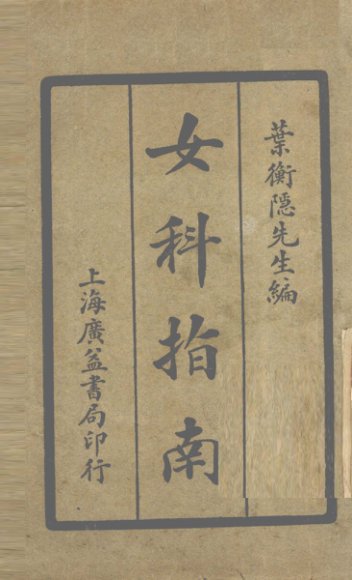 葉衡隱先生編
女科指南
上海廣益書局印行